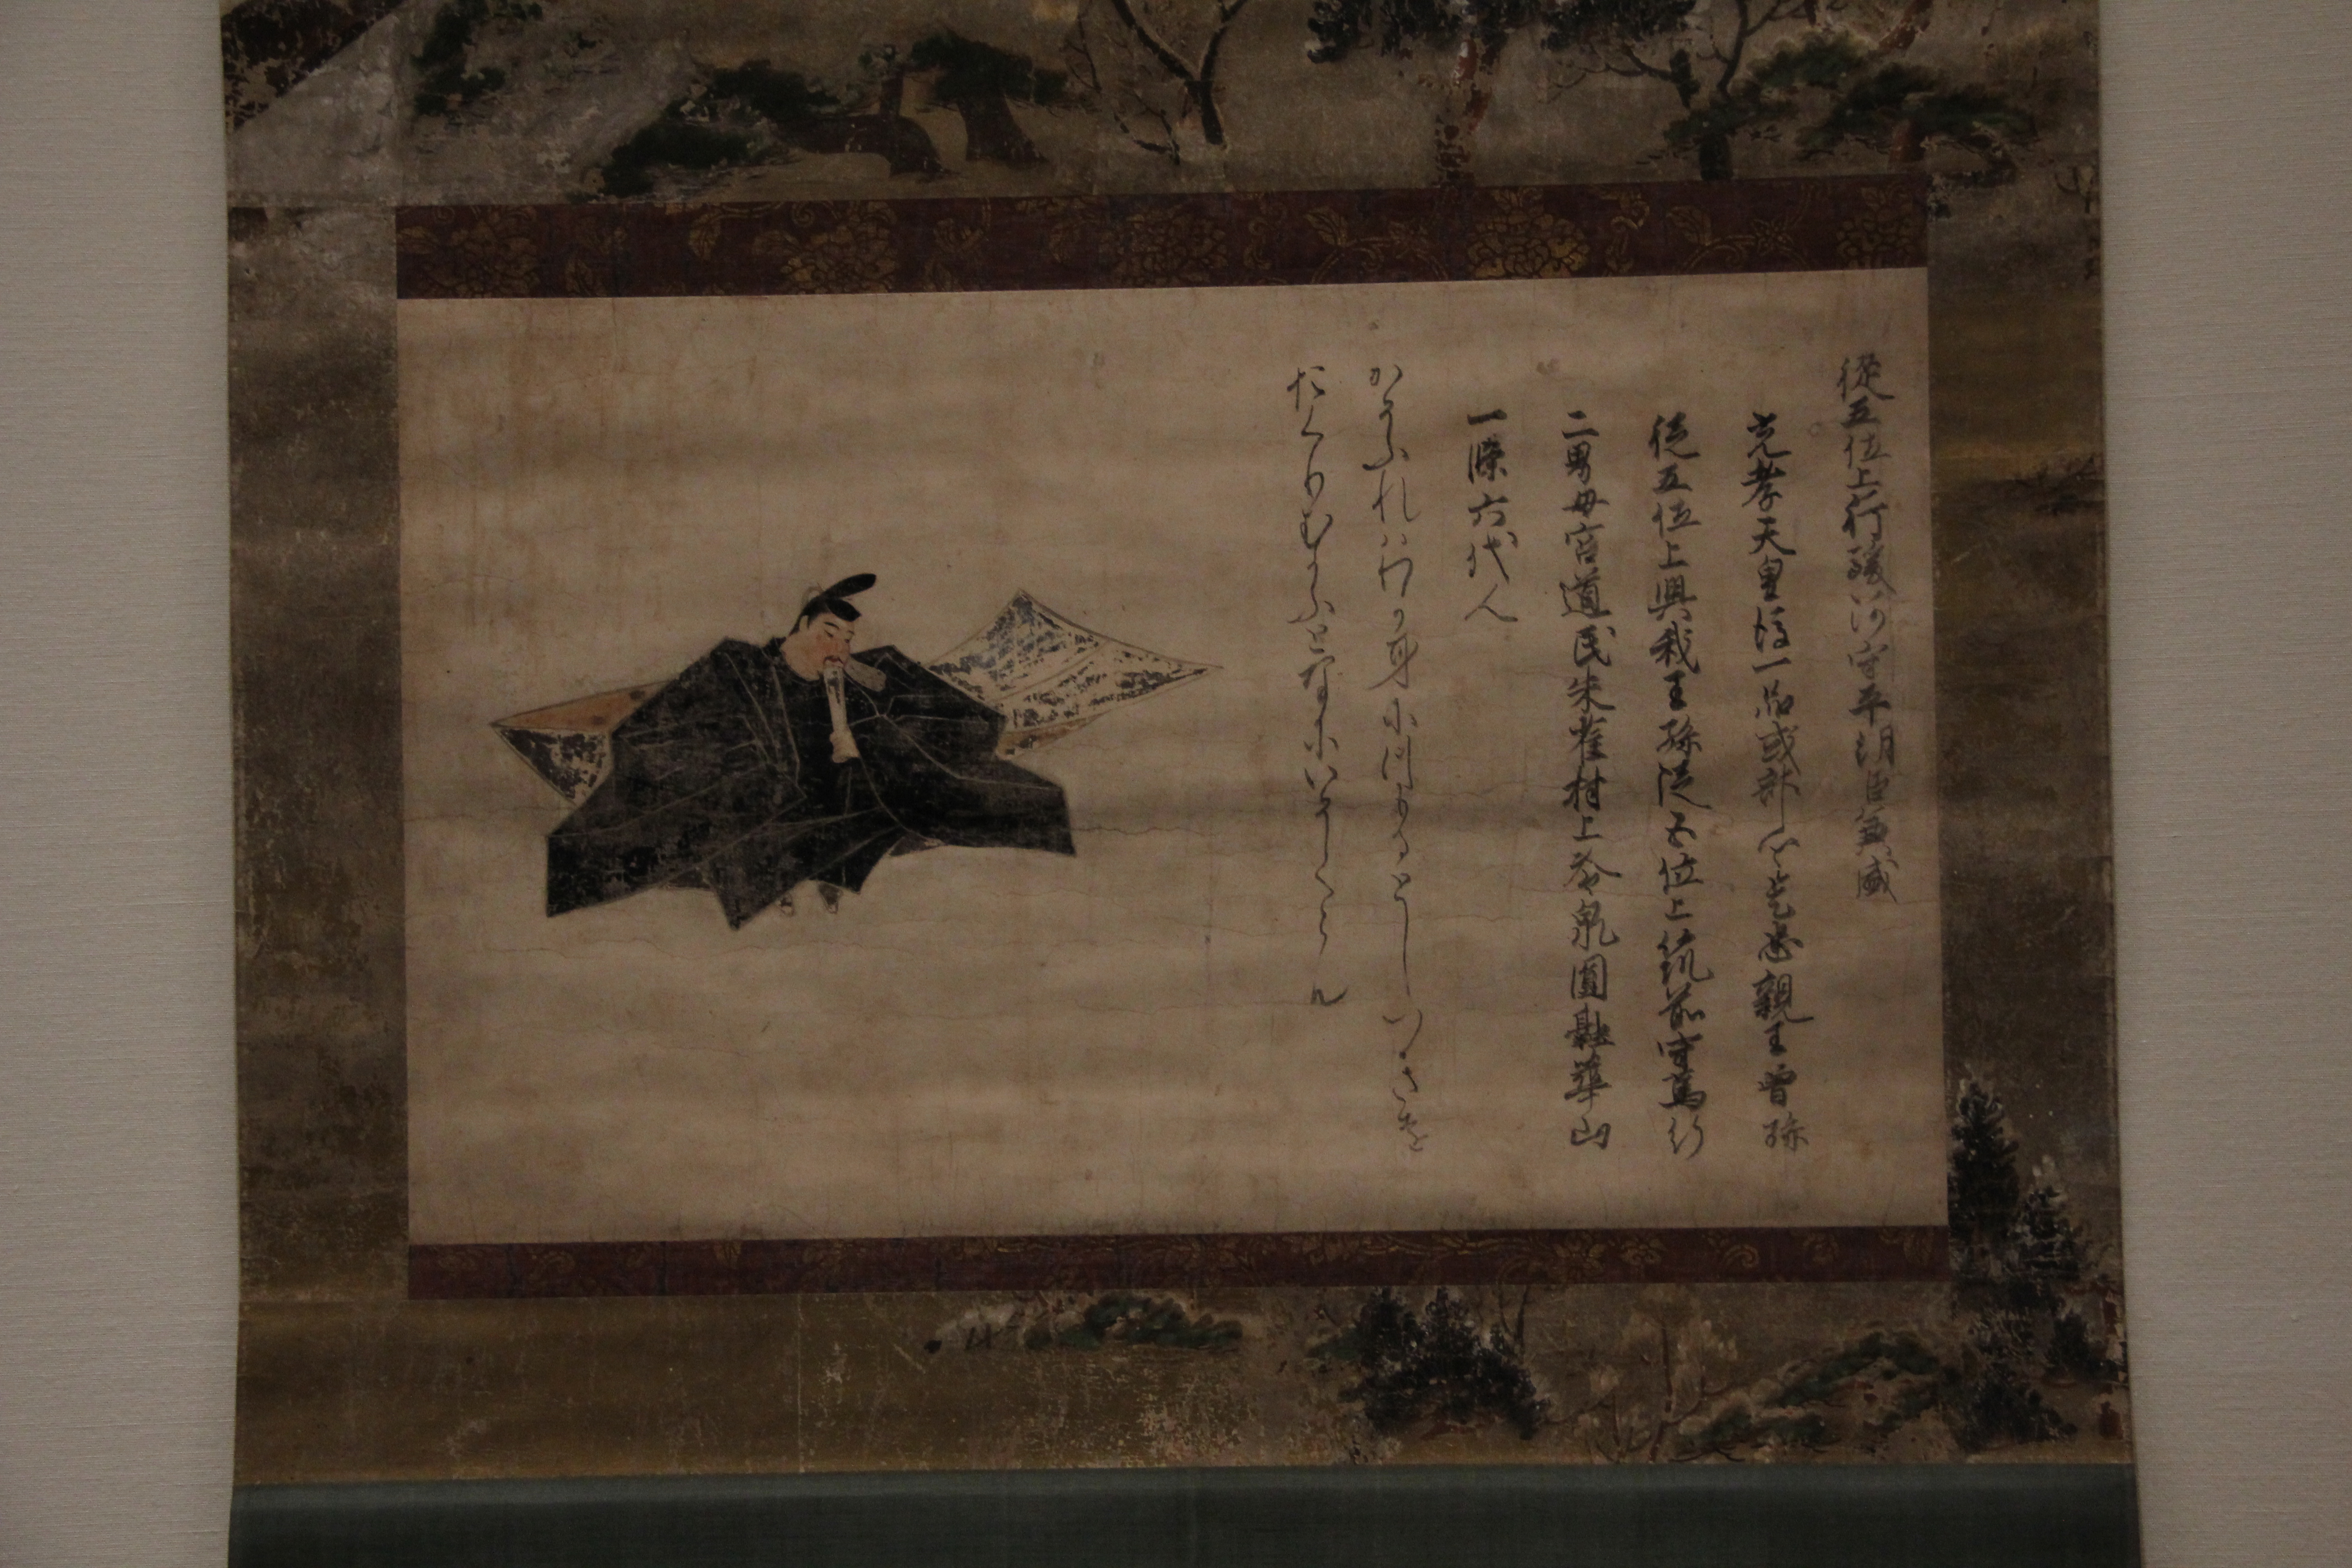 従五位上行駿河守平朝臣兼盛
光孝天皇後一品式部卿是忠親王曾孫
従五位上興我王孫従五位上筑前守篤行
二男母宮道氏朱雀村上冷泉圓融華山
一條六代人
かそふれはわか身につもるとし月を
おくりむかふとなにいそくらん